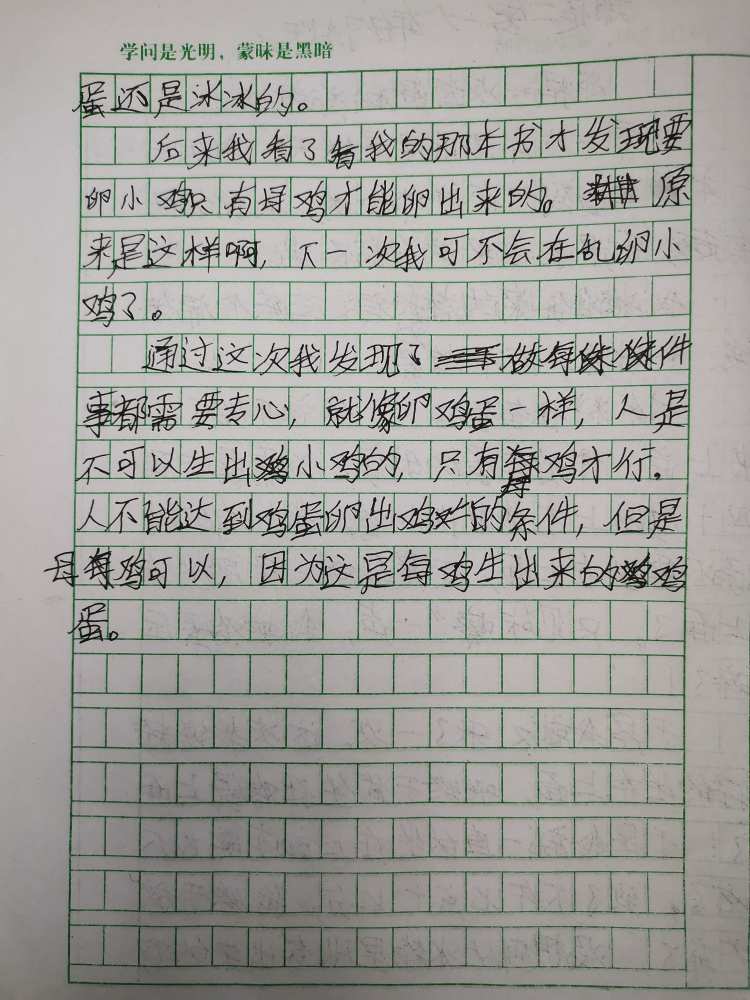 学问是光明，蒙昧是黑暗
蛋还是冰冰的。
后来我看了看我的那本书才发现要
卵小鸡只有母鸡才能卵出来的。原
来是这样啊，下一次我可不会在乱卵小
鸡了。
通过这次我发现了做每件
事都需要专心，就像卵鸡蛋一样，人是
不可以生出小鸡的，只有母鸡才行.
人不能达到鸡蛋卵出鸡的条件，但是
母鸡可以，因为这是每鸡生出来的鸡
蛋。